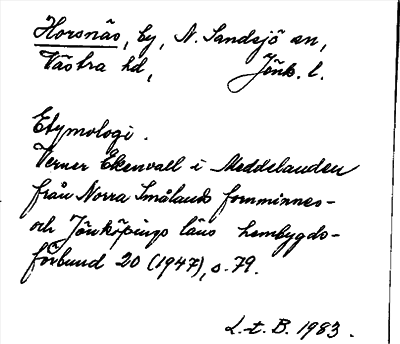 Horsnäs, by, N. Sandsjö sn,
Västra hd, Jönk. l.
Etymologi.
Verner Ekenvall i Meddelanden
från Norra Smålands fornminnes-
och Jönköpings läns hembygds-
förbund 20 (1947), s. 79.
L.-t. B. 1983.